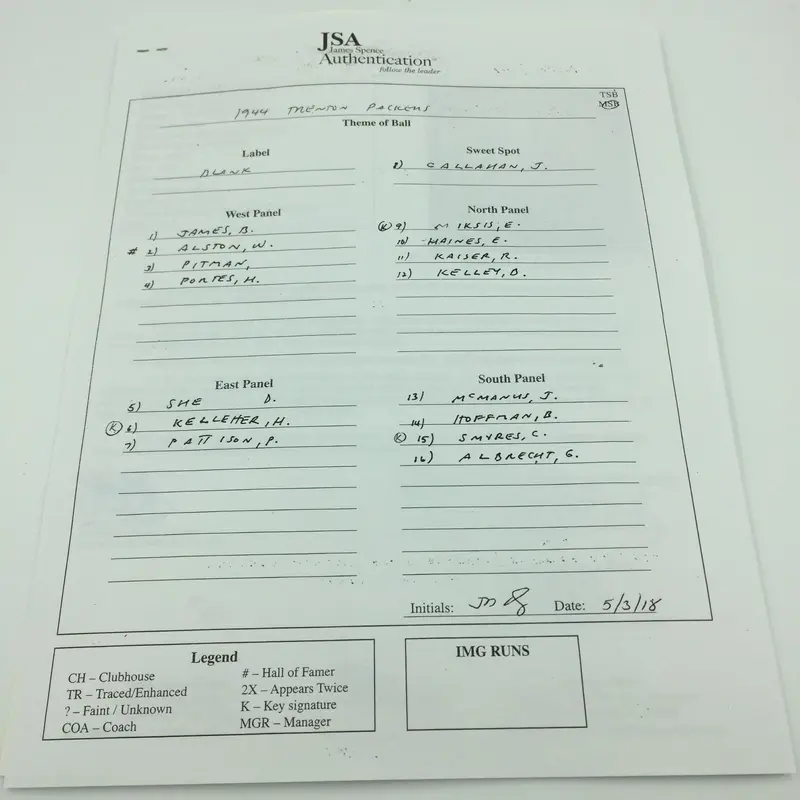 JSA
James Spence
Authentication
follow the leader
TSB
MSB
1944 TRENTON PACKERS
Theme of Ball
Label
BLANK
Sweet Spot
8) CALLAHAN, J.
West Panel
1) JAMES, B.
# 2) ALSTON, W.
3) PITMAN,
4) PORTES, H.
North Panel
(K) 9) MIKSIS, E.
10) HAINES, E.
11) KAISER, R.
12) KELLEY, D.
East Panel
5) SHE D.
(K) 6) KELLEHER, H.
7) PATTISON, P.
South Panel
13) McMANUS, J.
14) HOFFMAN, B.
(K) 15) SMYRES, C.
16) ALBRECHT, G.
Initials: Date: 5/3/18
Legend
CH – Clubhouse
TR – Traced/Enhanced
? – Faint / Unknown
COA – Coach
# – Hall of Famer
2X – Appears Twice
K – Key signature
MGR – Manager
IMG RUNS